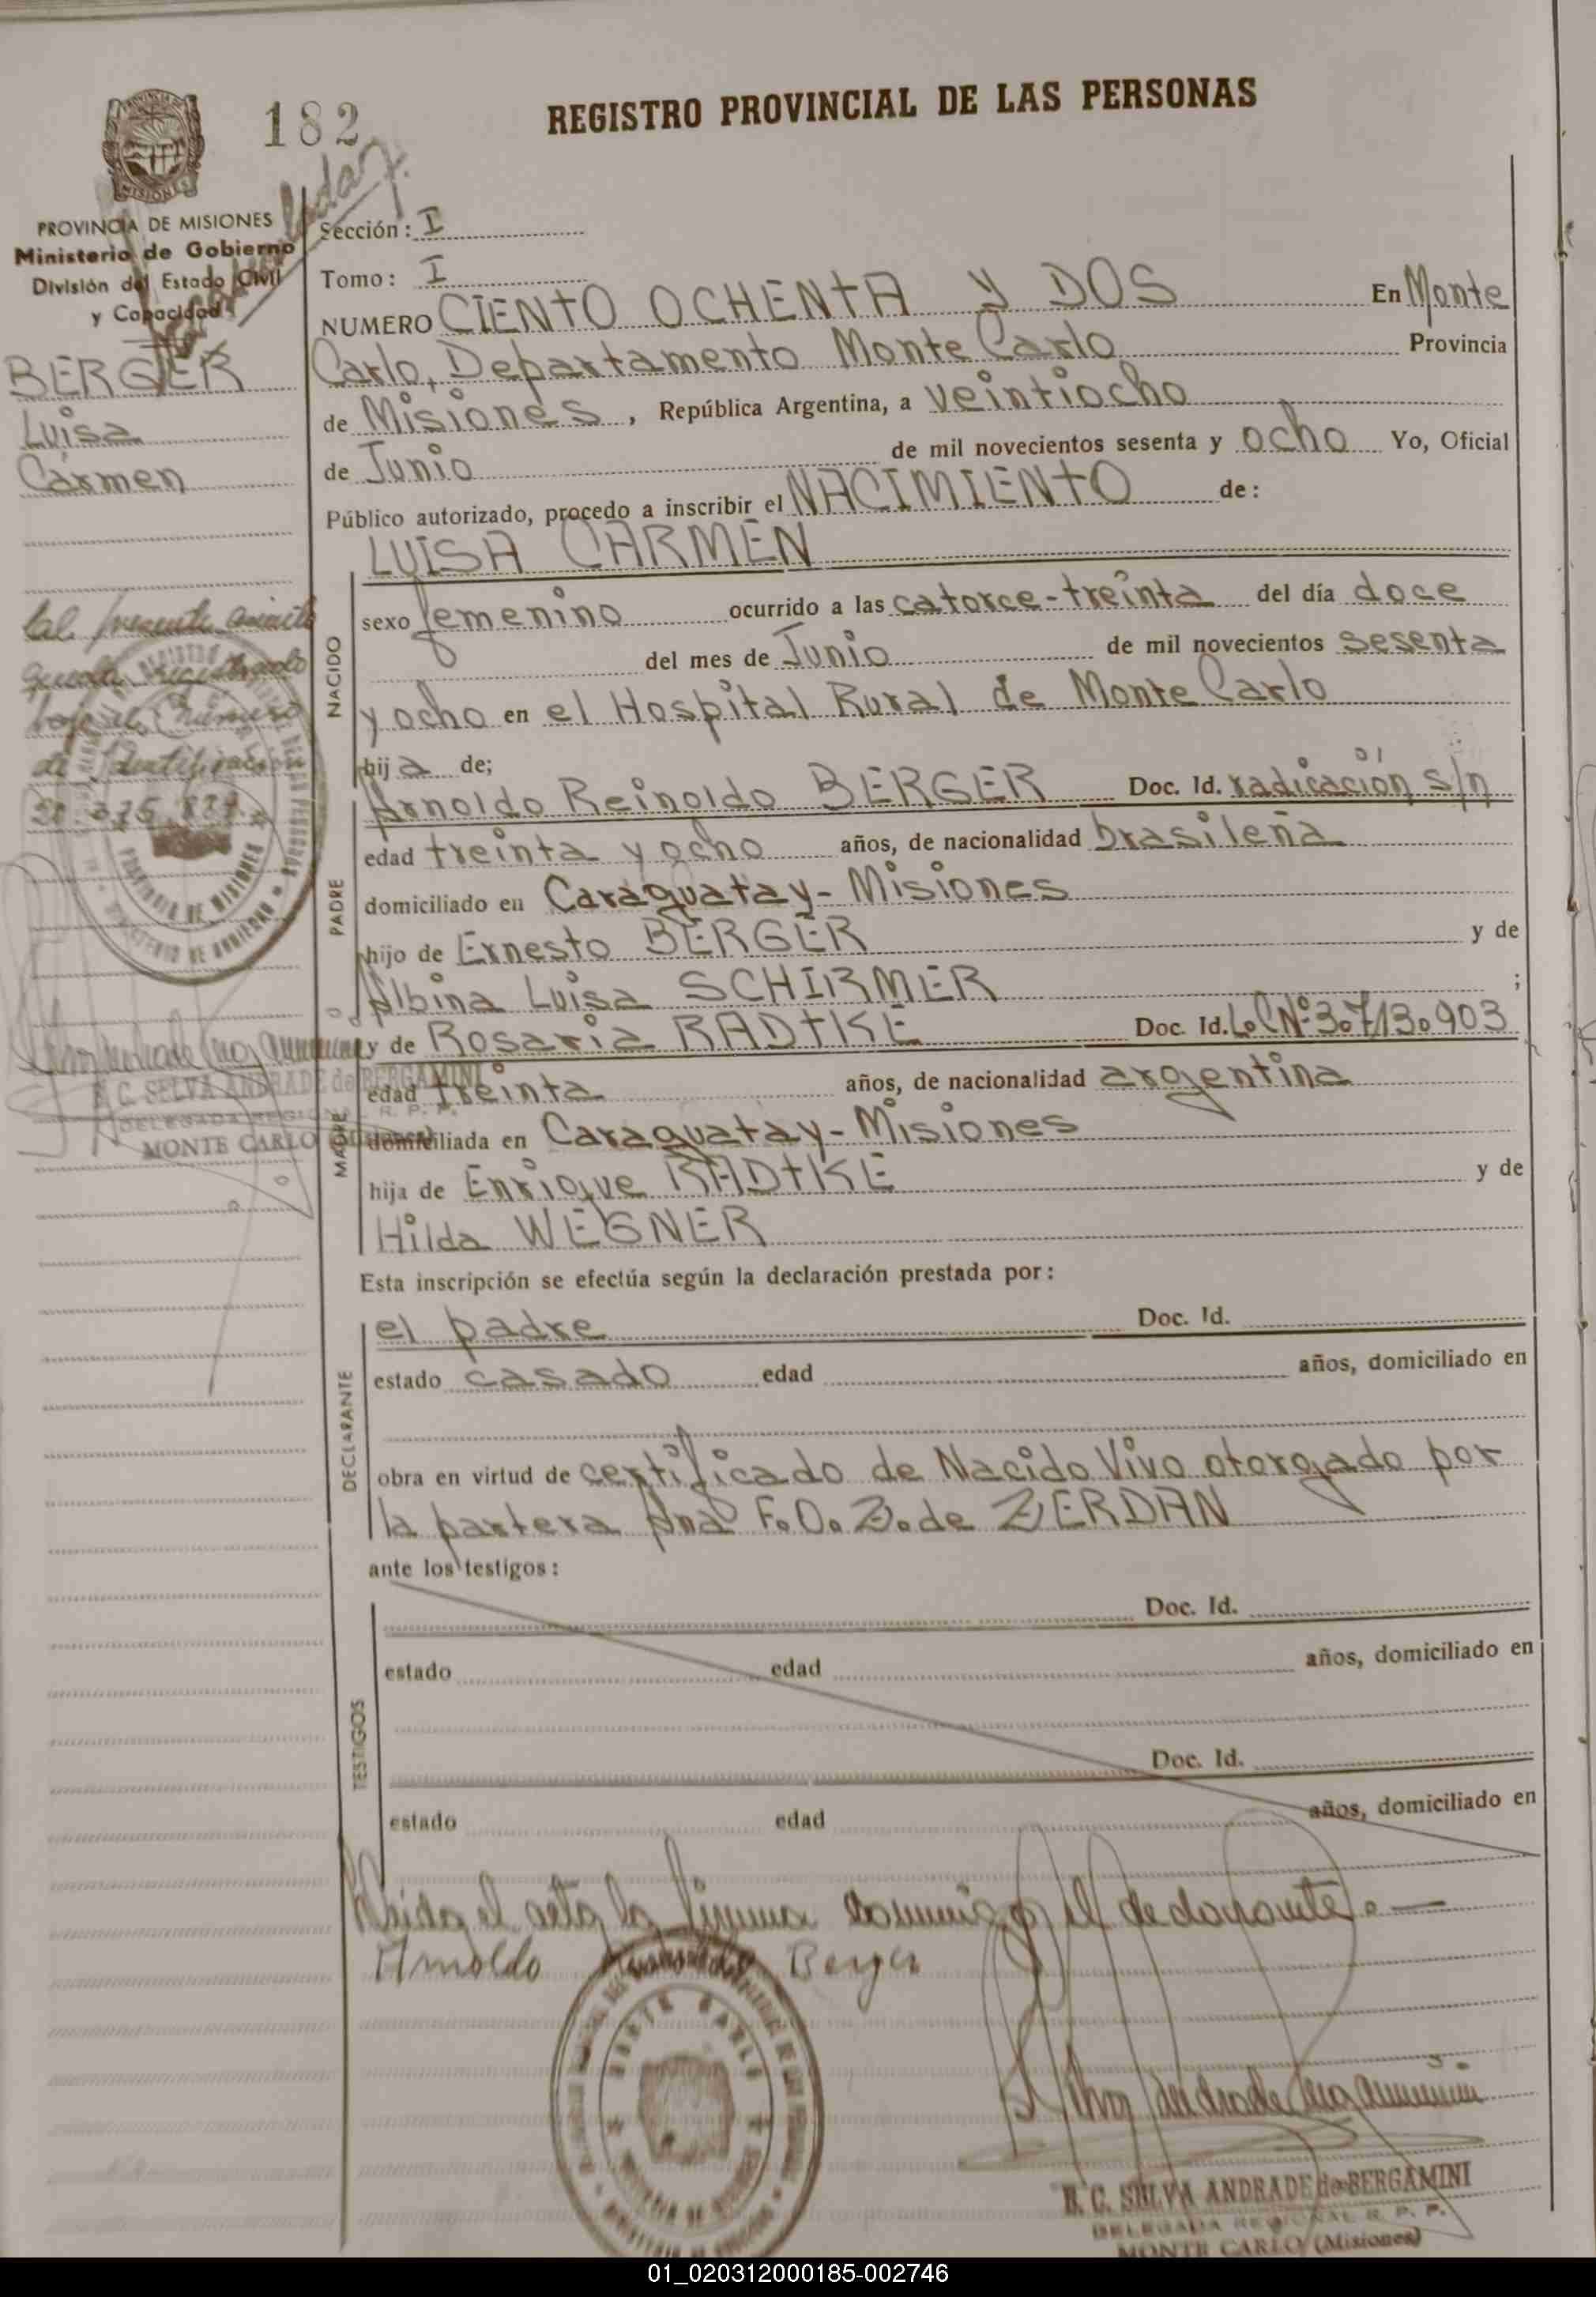 182
REGISTRO PROVINCIAL DE LAS PERSONAS
MISIONES
PROVINCIA DE MISIONES
Ministerio de Gobierno
División del Estado Civil
y Capacidad
BERGER
Luisa
Carmen
Sección: I
Tomo: I
NUMERO CIENTO OCHENTA Y DOS En Monte
Carlo, Departamento Monte Carlo Provincia
de Misiones, República Argentina, a veintiocho
de Junio de mil novecientos sesenta y ocho Yo, Oficial
Público autorizado, procedo a inscribir el NACIMIENTO de:
NACIDO
LUISA CARMEN
sexo femenino ocurrido a las catorce-treinta del día doce
del mes de Junio de mil novecientos sesenta
y ocho en el Hospital Rural de Monte Carlo
hija de;
La presente
queda registrado
bajo el Número
de Identificación
PROVINCIA DE MISIONES
PADRE
Arnoldo Reinoldo BERGER Doc. Id. radicación s/n
edad treinta y ocho años, de nacionalidad brasileña
domiciliado en Caraguatay-Misiones
hijo de Ernesto BERGER y de
Albina Luisa SCHIRMER ;
MADRE
y de Rosaria RADTKE Doc. Id. L.C Nº 3.713.903
edad treinta años, de nacionalidad argentina
domiciliada en Caraguatay-Misiones
hija de Enrique RADTKE y de
Hilda WEGNER
C. SELVA ANDRADE de BERGAMINI
DELEGADA REGIONAL R. P. P.
MONTE CARLO (Misiones)
Esta inscripción se efectúa según la declaración prestada por:
DECLARANTE
el padre Doc. Id.
estado casado edad años, domiciliado en
obra en virtud de certificado de Nacido Vivo otorgado por
la partera Ana F.O.Z. de ZERDAN
ante los testigos:
TESTIGOS
Doc. Id.
estado edad años, domiciliado en
Doc. Id.
estado edad años, domiciliado en
Leída el acta, la firma conmigo el declarante.—
Arnoldo Berger
MONTE CARLO
Selva Andrade
C. SELVA ANDRADE de BERGAMINI
DELEGADA REGIONAL R. P. P.
MONTE CARLO (Misiones)
01_020312000185-002746